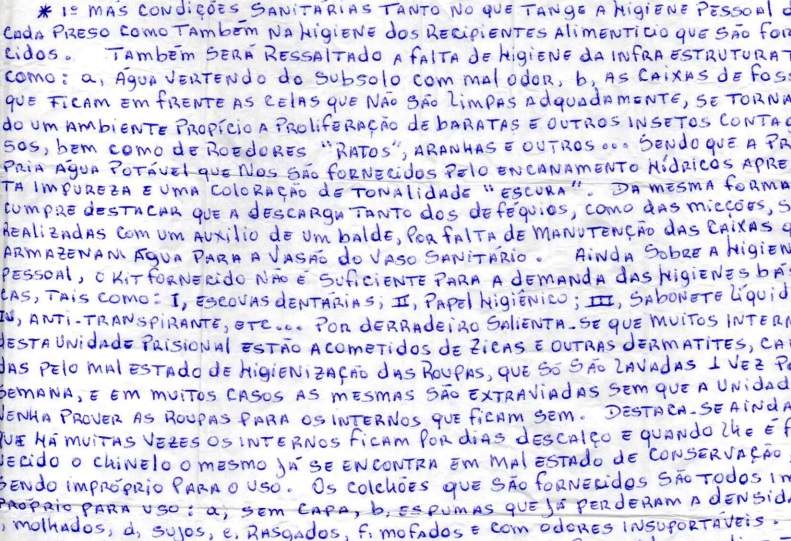 * 1º MÁS CONDIÇÕES SANITÁRIAS TANTO NO QUE TANGE A HIGIENE PESSOAL d
CADA PRESO COMO TAMBÉM NA HIGIENE DOS RECIPIENTES ALIMENTÍCIO QUE SÃO FOR
CIDOS. TAMBÉM SERÁ RESSALTADO A FALTA DE HIGIENE DA INFRAESTRUTURA T
COMO: a, ÁGUA VERTENDO DO SUBSOLO COM MAL ODOR, b, AS CAIXAS DE FOSS
QUE FICAM EM FRENTE AS CELAS QUE NÃO SÃO LIMPAS ADQUADAMENTE, SE TORNA
DO UM AMBIENTE PROPÍCIO A PROLIFERAÇÃO DE BARATAS E OUTROS INSETOS CONTAG
SOS, BEM COMO DE ROEDORES "RATOS", ARANHAS E OUTROS... SENDO QUE A PR
PRIA ÁGUA POTÁVEL QUE NOS SÃO FORNECIDOS PELO ENCANAMENTO HÍDRICOS APRE
TA IMPUREZA E UMA COLORAÇÃO DE TONALIDADE "ESCURA". DA MESMA FORMA
CUMPRE DESTACAR QUE A DESCARGA TANTO DOS DEFÉQUIOS, COMO DAS MICÇÕES, S
REALIZADAS COM UM AUXÍLIO DE UM BALDE, POR FALTA DE MANUTENÇÃO DAS CAIXAS Q
ARMAZENAM ÁGUA PARA A VASÃO DO VASO SANITÁRIO. AINDA SOBRE A HIGIEN
PESSOAL, O KIT FORNECIDO NÃO É SUFICIENTE PARA A DEMANDA DAS HIGIENES BÁS
CAS, TAIS COMO: I, ESCOVAS DENTÁRIAS; II, PAPEL HIGIÊNICO; III, SABONETE LÍQUID
IV, ANTI-TRANSPIRANTE, ETC... POR DERRADEIRO SALIENTA-SE QUE MUITOS INTERN
DESTA UNIDADE PRISIONAL ESTÃO ACOMETIDOS DE ZICAS E OUTRAS DERMATITES, CA
DAS PELO MAL ESTADO DE HIGIENIZAÇÃO DAS ROUPAS, QUE SÓ SÃO LAVADAS 1 VEZ PO
SEMANA, E EM MUITOS CASOS AS MESMAS SÃO EXTRAVIADAS SEM QUE A UNIDAD
VENHA PROVER AS ROUPAS PARA OS INTERNOS QUE FICAM SEM. DESTACA-SE AINDA
QUE HÁ MUITAS VEZES OS INTERNOS FICAM POR DIAS DESCALÇO E QUANDO LHE É F
NECIDO O CHINELO O MESMO JÁ SE ENCONTRA EM MAL ESTADO DE CONSERVAÇÃO,
SENDO IMPRÓPRIO PARA O USO. OS COLCHÕES QUE SÃO FORNECIDOS SÃO TODOS IM
PRÓPRIO PARA USO: a, SEM CAPA, b, ESPUMAS QUE JÁ PERDERAM A DENSIDA
, MOLHADOS, d, SUJOS, e, RASGADOS, f, MOFADOS E COM ODORES INSUPORTÁVEIS.